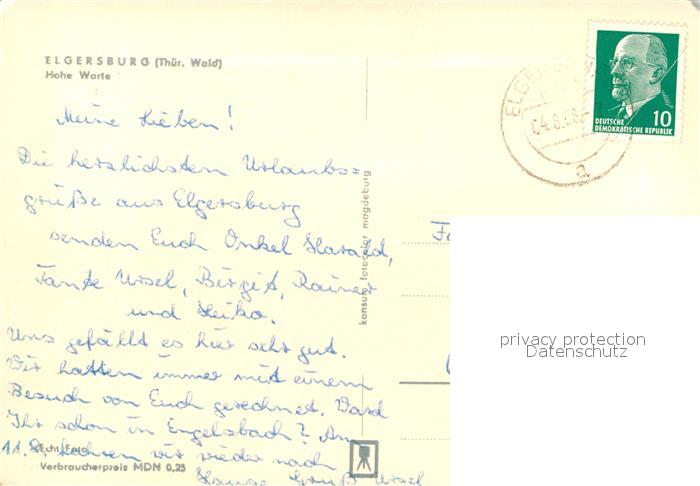 ELGERSBURG (Thür. Wald)
Hohe Warte
Meine Lieben!
Die herzlichsten Urlaubs=
grüße aus Elgersburg
senden Euch Onkel Harald,
Tante Ursel, Birgit, Rainer
und Heiko.
Uns gefällt es hier sehr gut.
Wir hatten immer mit einem
Besuch von Euch gerechnet.
Ihr schon in Engelsbach? Am
11.8. fahren wir wieder nach
Hause Gruß Ursel
Echt Foto
Verbraucherpreis MDN 0,25
konsum fotocolor magdeburg
ELGERSB
04.8.68
a
10
DEUTSCHE
DEMOKRATISCHE REPUBLIK
privacy protection
Datenschutz